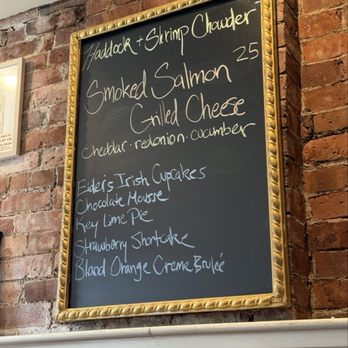 Haddock + Shrimp Chowder
Smoked Salmon 25
Grilled Cheese
Cheddar · red onion · cucumber
Eider's Irish Cupcakes
Chocolate Mousse
Key Lime Pie
Strawberry Shortcake
Blood Orange Creme Bruleé